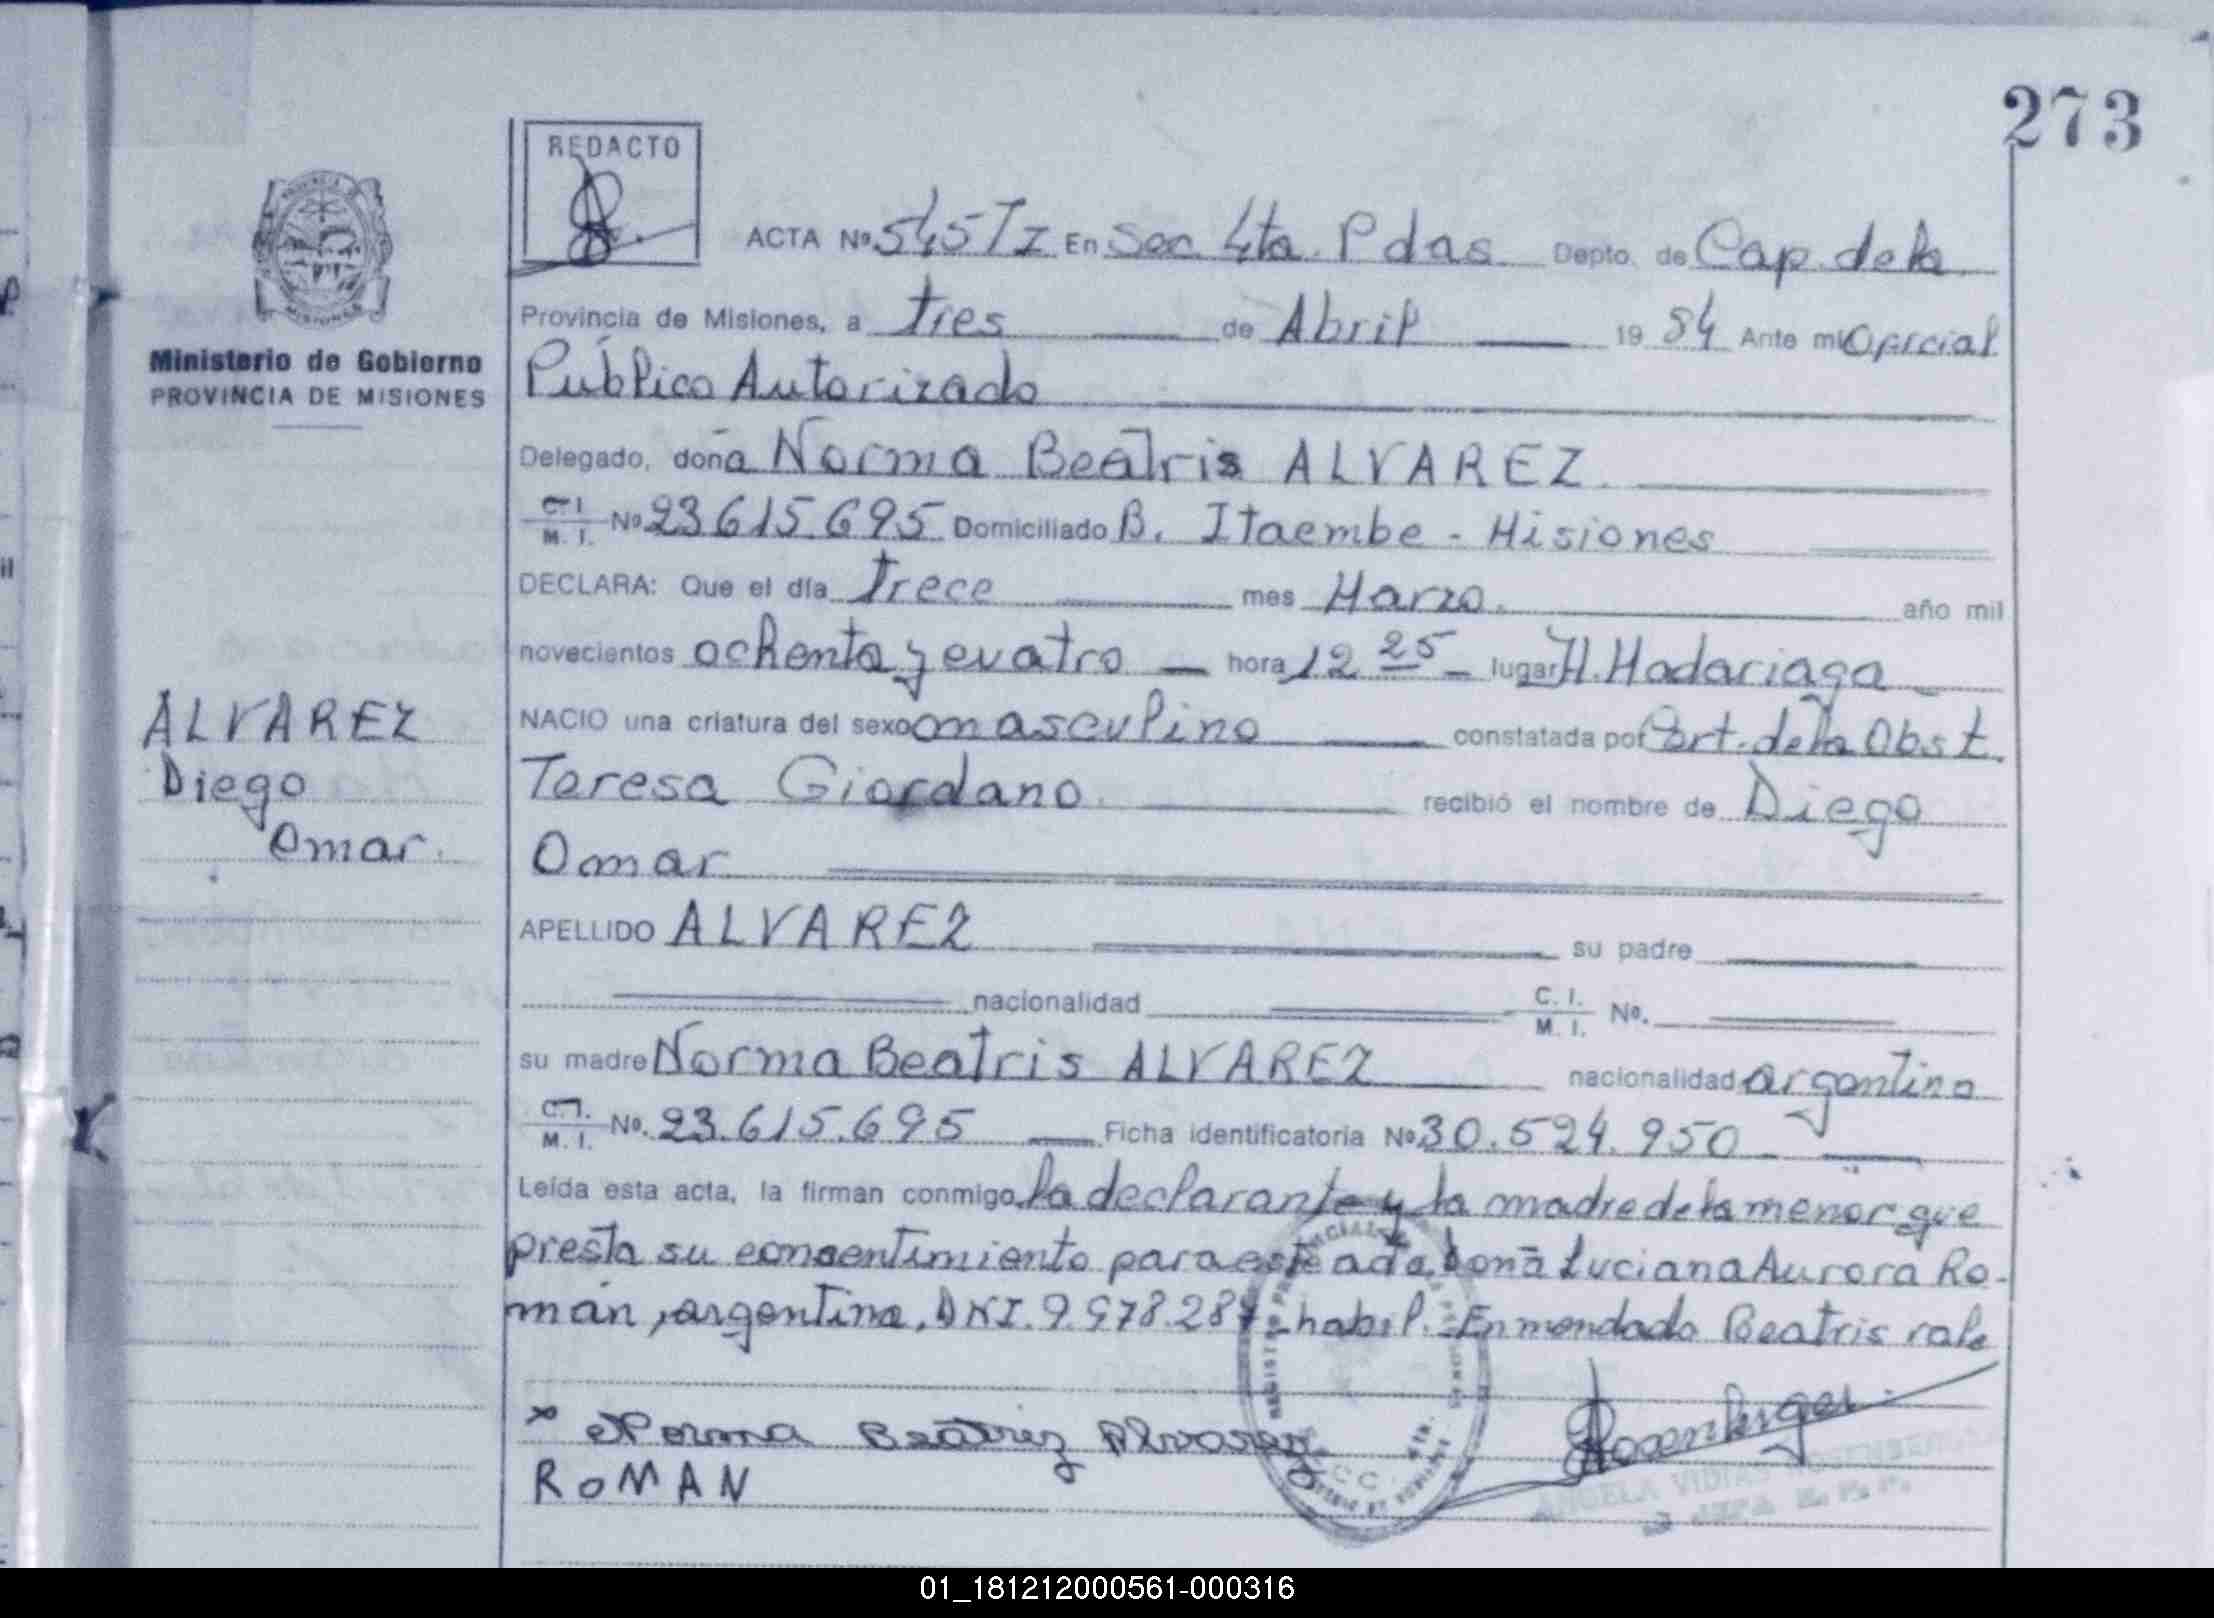 273
REDACTO
ACTA Nº 545 T I En Sec. 4ta. Pdas Depto. de Cap. de la
Provincia de Misiones, a tres de Abril 19 84 Ante mi Oficial
Público Autorizado
Ministerio de Gobierno
PROVINCIA DE MISIONES
Delegado, doña Norma Beatris ALVAREZ.
C. I. M. I. Nº 23.615.695 Domiciliado B. Itaembe - Misiones
DECLARA: Que el día trece mes Marzo. año mil
novecientos ochenta y cuatro hora 12 25 lugar H. Madariaga
NACIO una criatura del sexo masculino constatada por Cert. de la Obst.
Teresa Giordano. recibió el nombre de Diego
Omar
ALVAREZ
Diego
Omar.
APELLIDO ALVAREZ su padre
nacionalidad C. I. M. I. No.
su madre Norma Beatris ALVAREZ nacionalidad argentina
C. I. M. I. No. 23.615.695 Ficha identificatoria Nº 30.524.950
Leída esta acta, la firman conmigo, la declarante y la madre de la menor que
presta su consentimiento para este acto doña Luciana Aurora Ro-
mán, argentina, DNI. 9.978.287 habil. Enmendado Beatris vale
x Norma Beatriz Alvarez
ROMAN
01_181212000561-000316